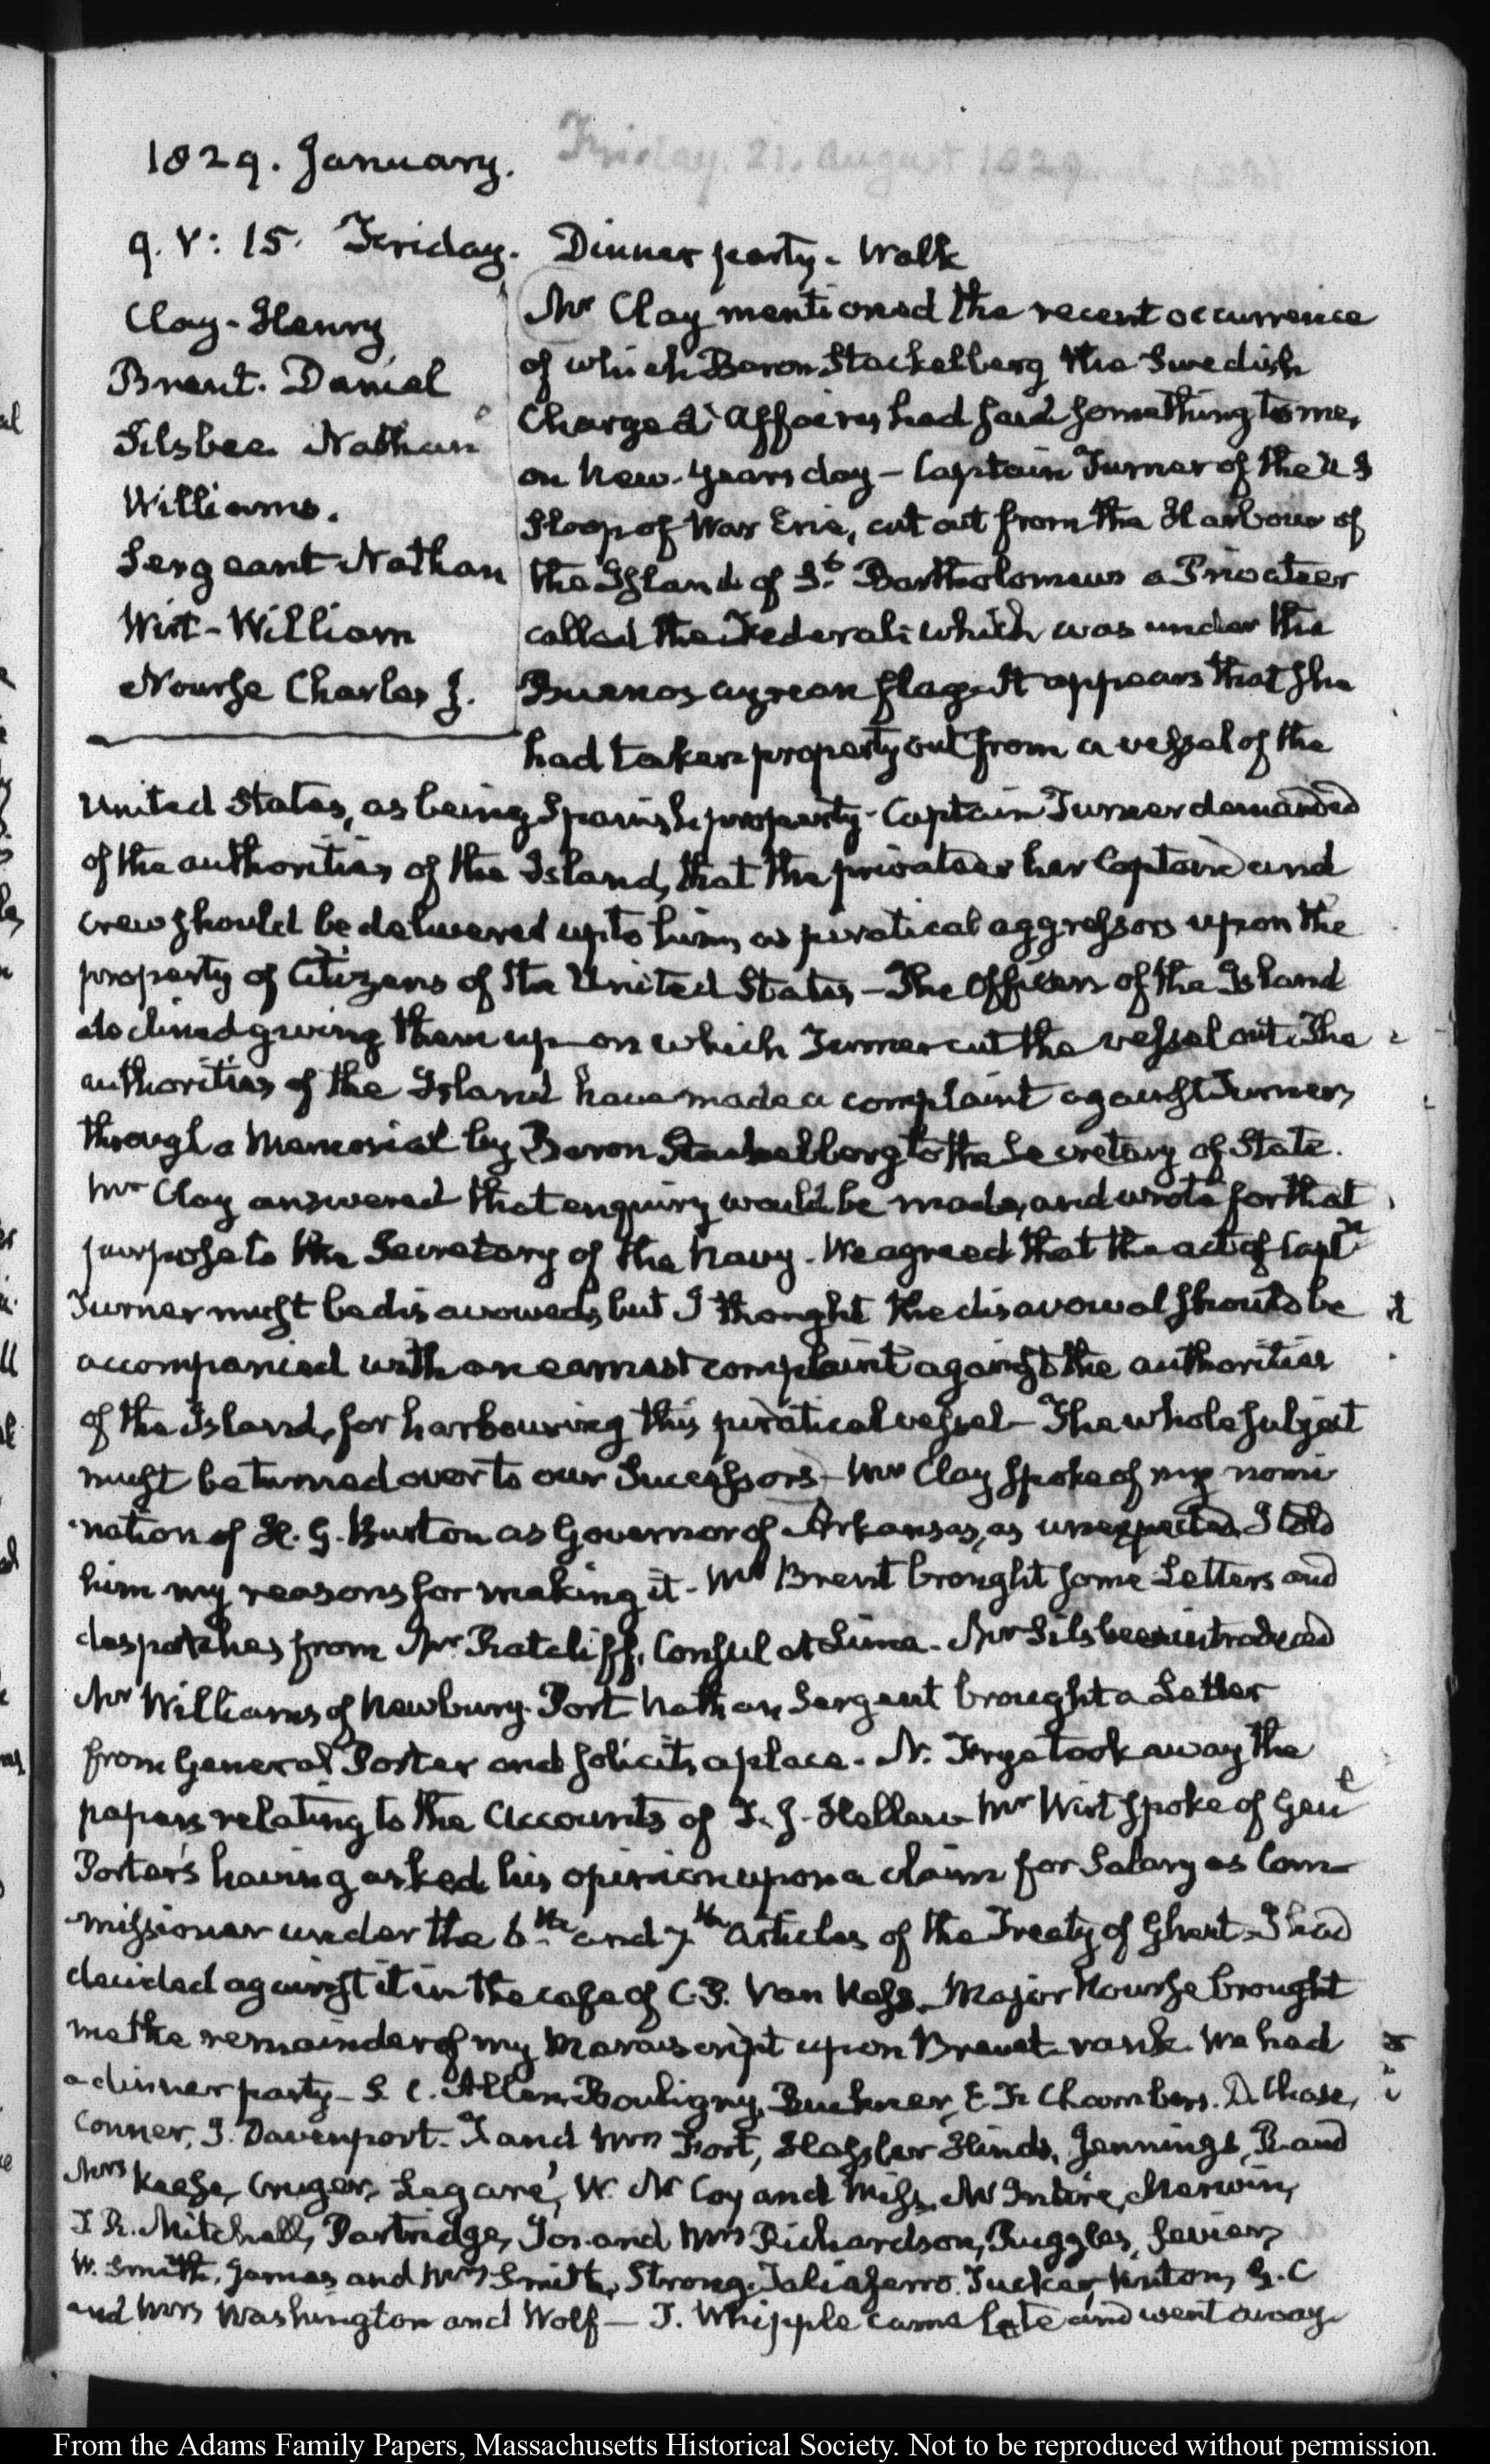 1829. January.
Friday. 21. August 1829.
9. V: 15. Friday. Dinner party. Walk
Clay-Henry
Brent. Daniel
Silsbee Nathan
Williams.
Sergeant Nathan
Wirt-William
Nourse Charles J.
Mr Clay mentioned the recent occurrence
of which Baron Stackelberg the Swedish
Charge d'Affaires had said something to me,
on New-Years day — Captain Turner of the U S
Sloop of War Erie, cut out from the Harbour of
the Island of St. Bartholomews a Privateer
called the Federal which was under the
Buenos ayrean flag. It appears that she
had taken property out from a vessel of the
United States, as being Spanish property. Captain Turner demanded
of the authorities of the Island, that the privateer her Captain and
crew should be delivered up to him, as piratical aggressors upon the
property of Citizens of the United States — The Officers of the Island
declined giving them up on which Turner cut the vessel out. The
authorities of the Island have made a complaint against Turner,
through a Memorial by Baron Stackelberg to the Secretary of State.
Mr Clay answered that enquiry would be made, and wrote for that
purpose to the Secretary of the Navy. We agreed that the act of Captn
Turner must be disavowed, but I thought the disavowal should be
accompanied with an earnest complaint against the authorities
of the Island, for harbouring this piratical vessel — The whole subject
must be turned over to our Successors — Mr Clay spoke of my nomi
nation of H. G. Burton as Governor of Arkansas, as unexpected. I told
him my reasons for making it. Mr Brent brought some Letters and
despatches from Mr Ratcliff, Consul at Lima. Mr Silsbee introduced
Mr Williams of Newbury-Port Nathan Sergeant brought a Letter
from General Porter and solicits a place. N. Frye took away the
papers relating to the Accounts of T. J. Hellen. Mr Wirt spoke of Genl
Porter's having asked his opinion upon a claim for Salary as Com
missioner under the 6th and 7th Articles of the Treaty of Ghent. I had
decided against it in the case of C. P. Van Ness. Major Nourse brought
me the remainder of my Manuscript upon Brevet rank. We had
a dinner party — S. C. Allen, Bouligny, Buckner, E. F. Chambers. D. Chase,
Conner, J. Davenport. T and Mrs Fort, Hassler Hinds, Jennings, R and
Mrs Keese, Cruger, Legaré, W. McCoy and Miss, McIntire, Merwin,
T. R. Mitchell, Partridge, Jos. and Mrs Richardson, Ruggles, Sevier,
W. Smith, James and Mrs Smith, Strong. Taliaferro. Tucker, G. C
and Mrs Washington and Wolf — J. Whipple came late and went away
From the Adams Family Papers, Massachusetts Historical Society. Not to be reproduced without permission.